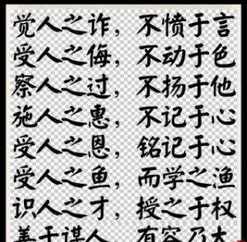 觉人之诈，不愤于言
受人之侮，不动于色
察人之过，不扬于他
施人之惠，不记于心
受人之恩，铭记于心
受人之鱼，而学之渔
识人之才，授之于权
善于谋人，有容乃大